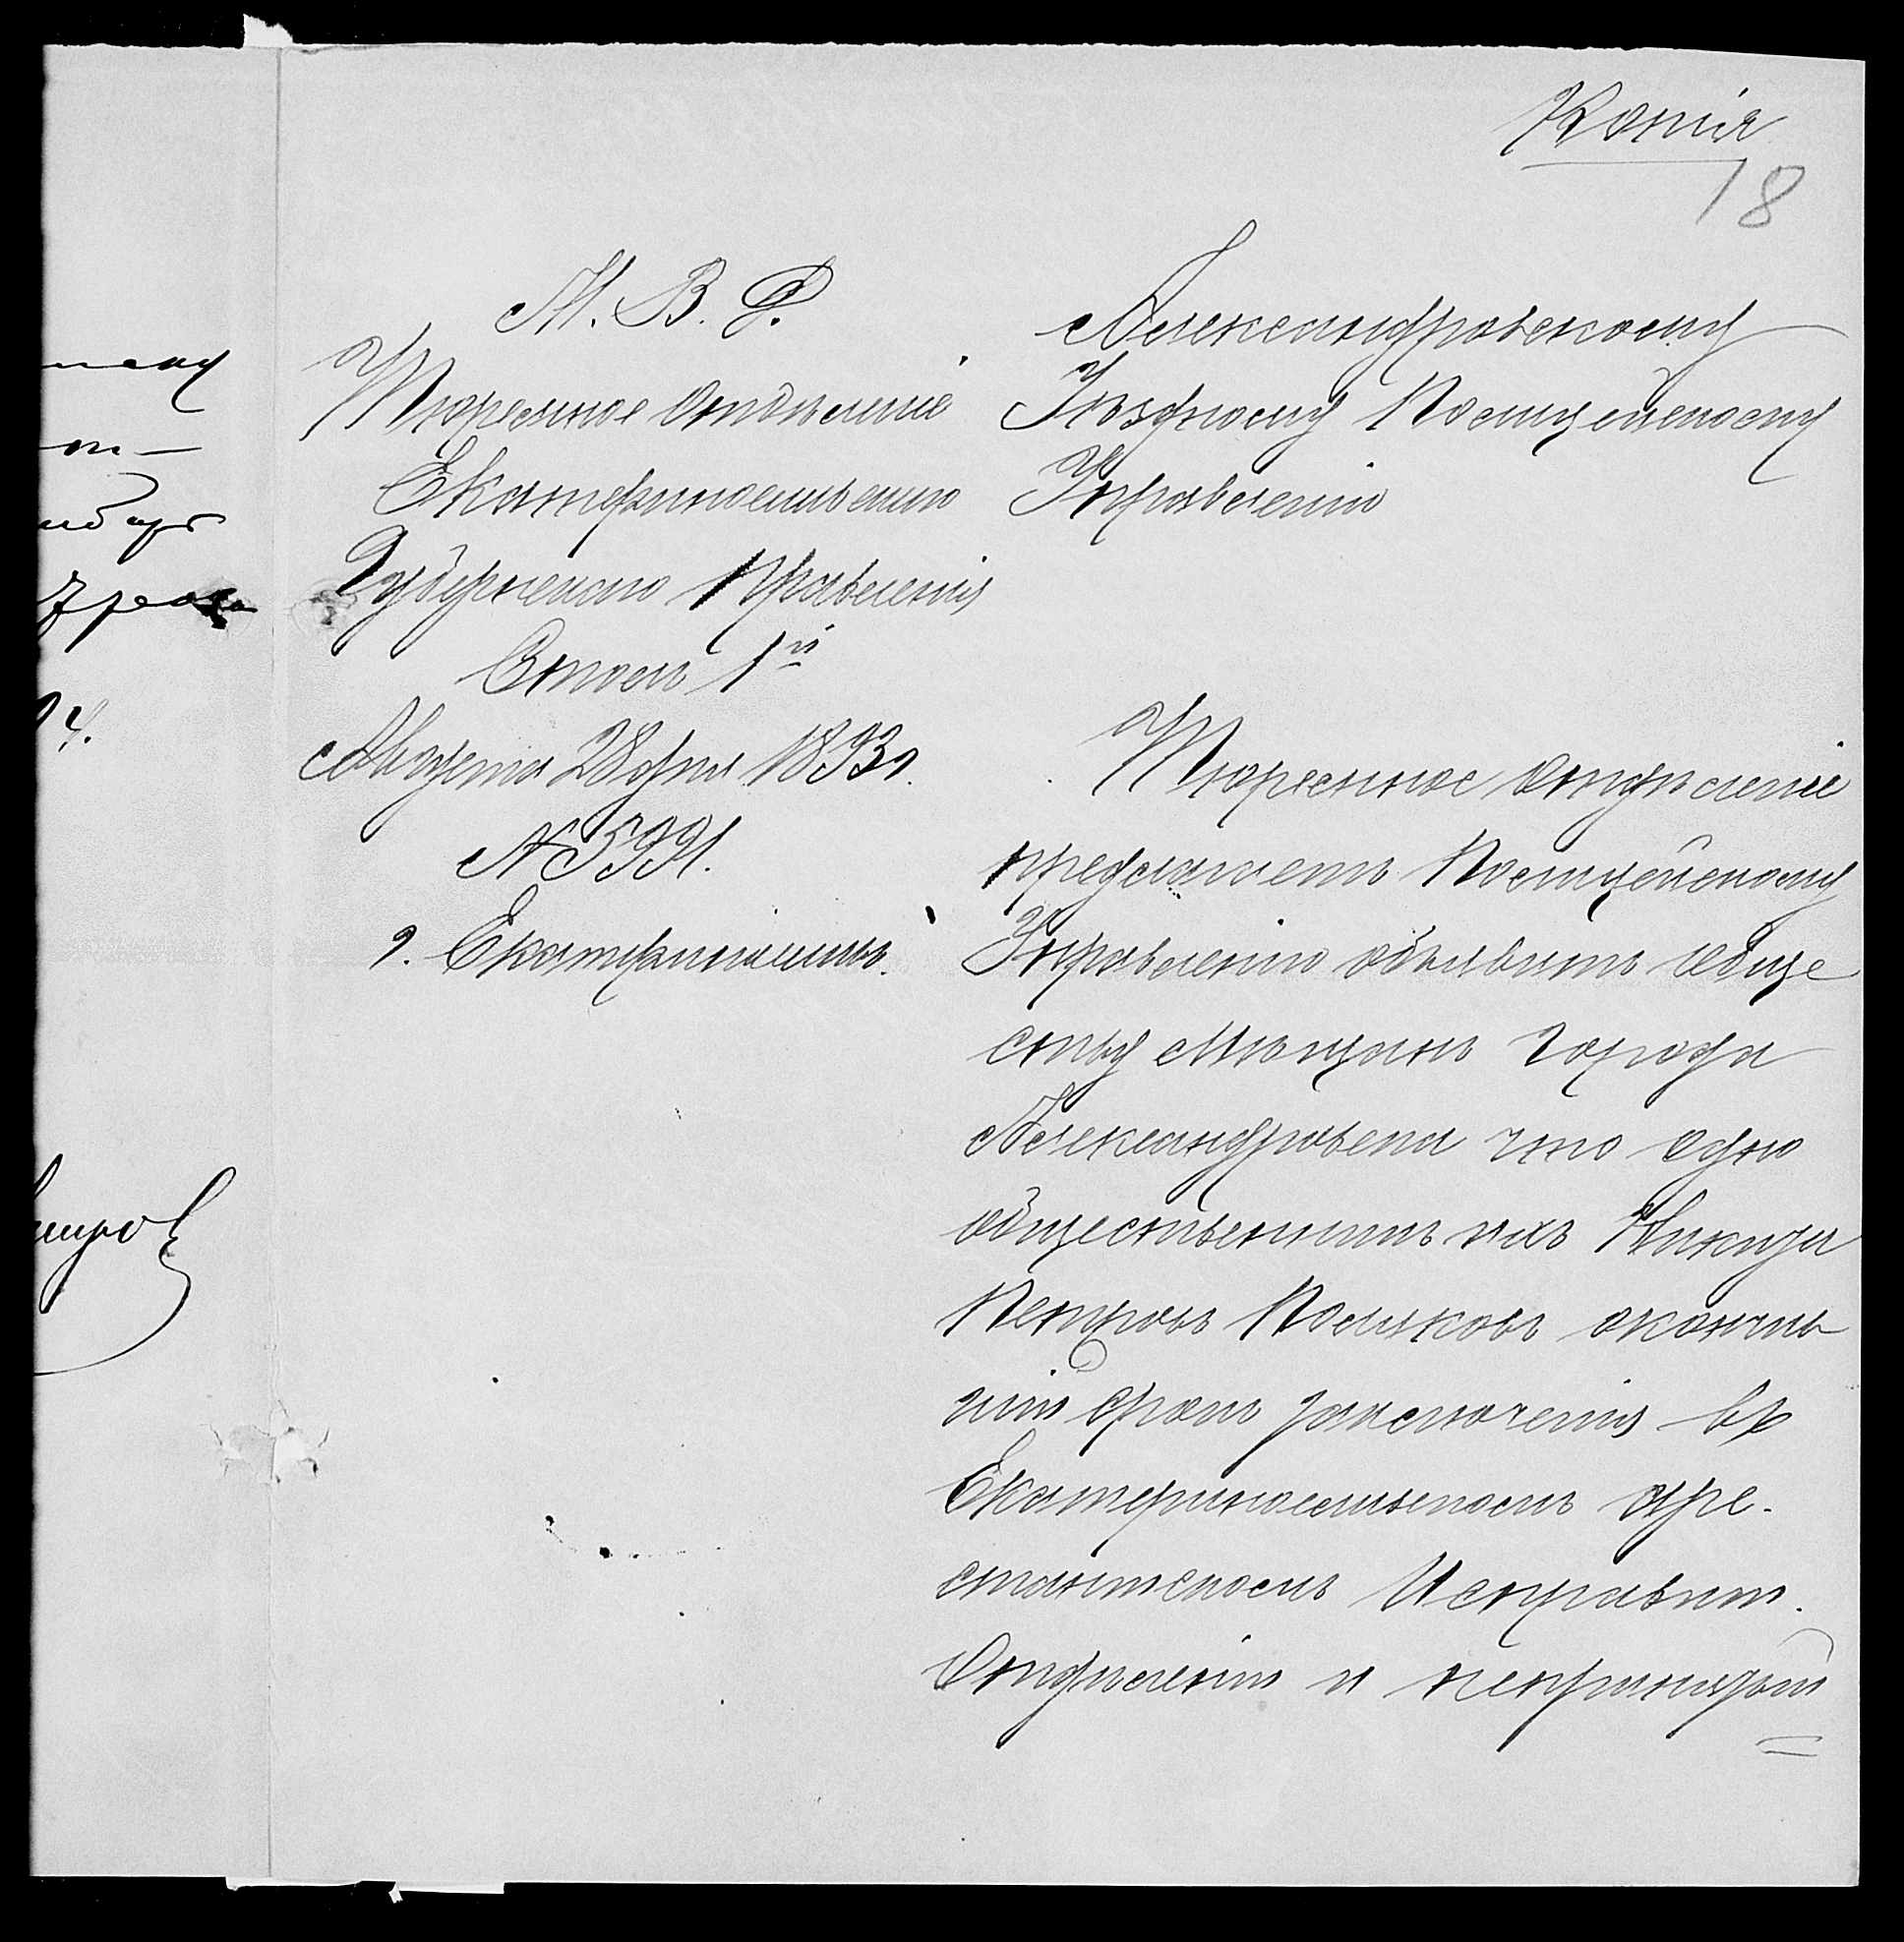 Копія
18
М. В. Д.
Тюремное Отдѣленіе
Екатеринославскаго
Губернскаго Правленія
Столъ 1й
Августа 28 дня 1893 г.
№ 5991.
г. Екатеринославъ.
Александровскому
Уѣздному Полицейскому
Управленію
Тюремное Отдѣленіе
предлагаетъ Полицейскому
Управленію объявить обще
ству мѣщанъ города
Александровска что одно
общественникъ ихъ
Петровъ Поляковъ окончив
шій срокъ заключенія въ
Екатеринославскомъ аре-
стантскомъ Исправит.
Отдѣленіи и непринятый